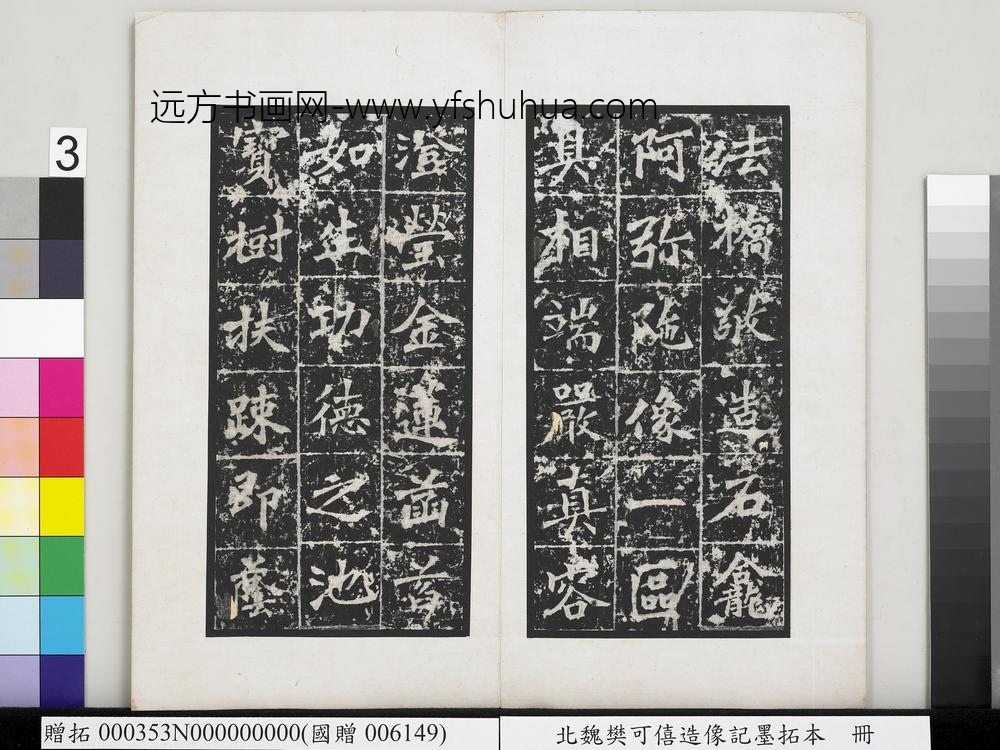 远方书画网-www.yfshuhua.com
3
法橋敬造石龕
阿弥陁像一區
具相端嚴真容
澄瑩金蓮菡萏
如生功德之池
寶樹扶踈即蔭
贈拓 000353N000000000(國贈 006149)
北魏樊可僖造像記墨拓本 冊